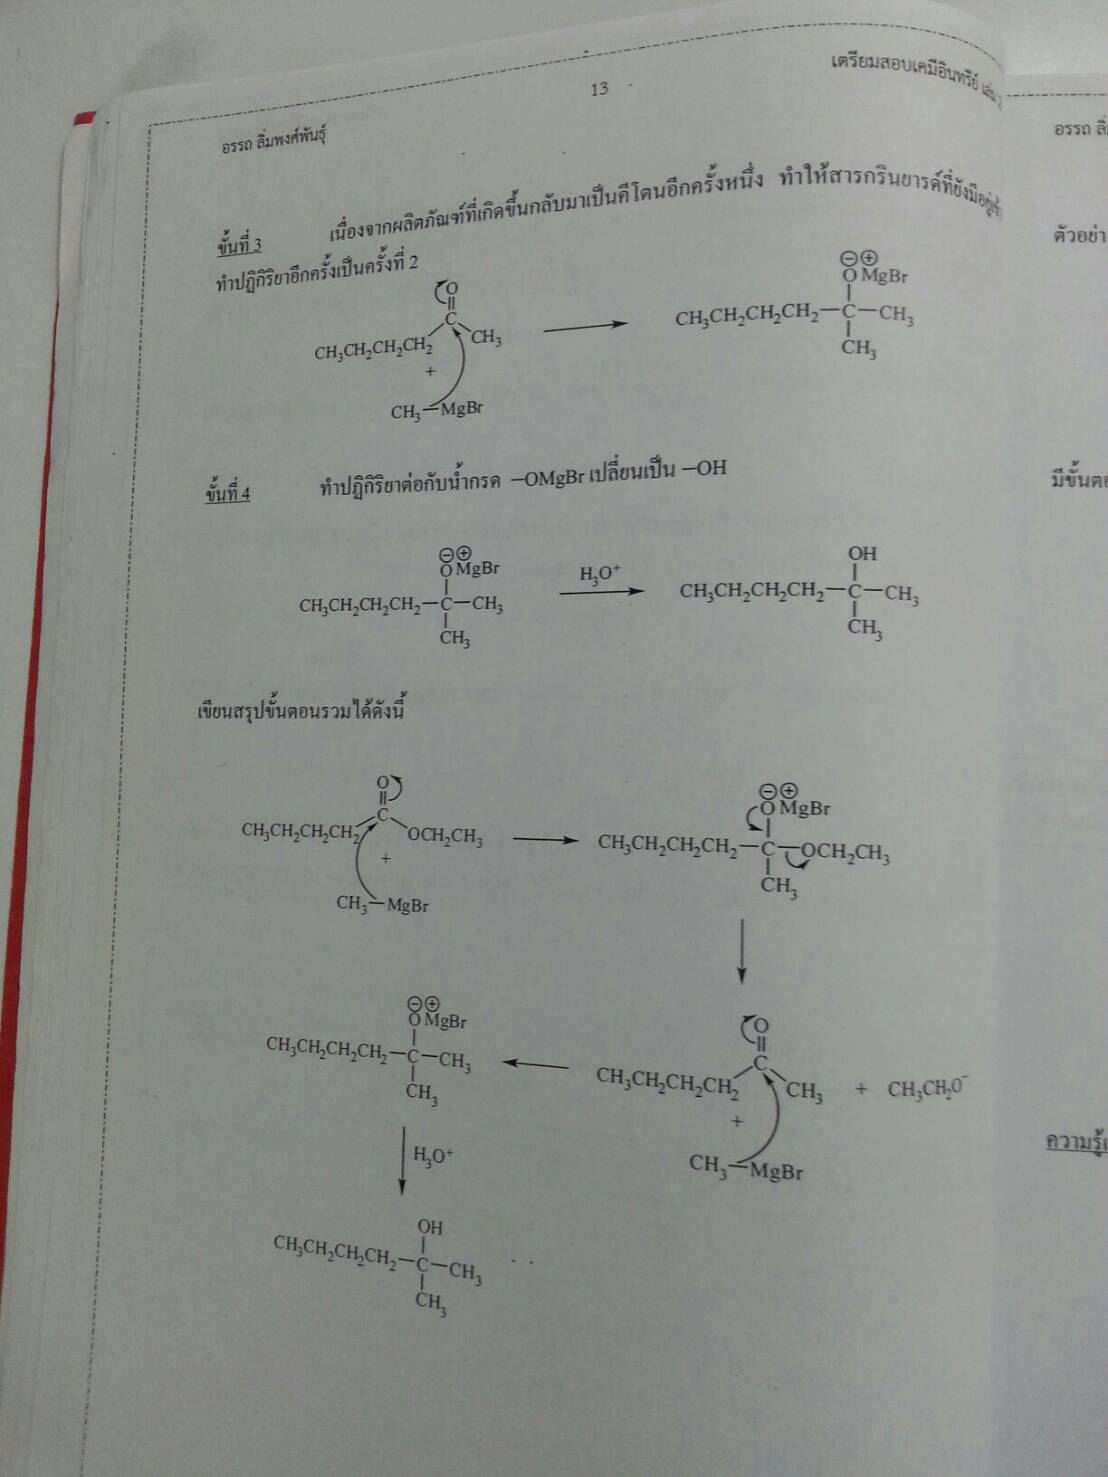 13
เตรียมสอบเคมีอินทรีย์ เล่ม 2
อรรถ ลิ่มพงศ์พันธุ์
ขั้นที่ 3 เนื่องจากผลิตภัณฑ์ที่เกิดขึ้นกลับมาเป็นคีโตนอีกครั้งหนึ่ง ทำให้สารกรินยารด์ที่ยังมีอยู่
ทำปฏิกิริยาอีกครั้งเป็นครั้งที่ 2
O
C
CH₃CH₂CH₂CH₂ CH₃
+
CH₃—MgBr
⊖⊕
O MgBr
CH₃CH₂CH₂CH₂—C—CH₃
CH₃
ขั้นที่ 4 ทำปฏิกิริยาต่อกับน้ำกรด —OMgBr เปลี่ยนเป็น —OH
⊖⊕
O MgBr
CH₃CH₂CH₂CH₂—C—CH₃
CH₃
H₃O⁺
OH
CH₃CH₂CH₂CH₂—C—CH₃
CH₃
เขียนสรุปขั้นตอนรวมได้ดังนี้
O
C
CH₃CH₂CH₂CH₂ OCH₂CH₃
+
CH₃—MgBr
⊖⊕
O MgBr
CH₃CH₂CH₂CH₂—C—OCH₂CH₃
CH₃
O
C
CH₃CH₂CH₂CH₂ CH₃ + CH₃CH₂O⁻
+
CH₃—MgBr
⊖⊕
O MgBr
CH₃CH₂CH₂CH₂—C—CH₃
CH₃
H₃O⁺
OH
CH₃CH₂CH₂CH₂—C—CH₃
CH₃
อรรถ
ตัวอย่า
มีขั้นตอ
ความรู้